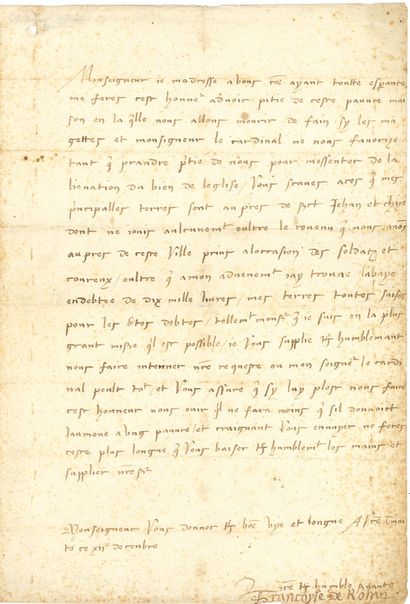 Monseigneur ie madresse a vous coe ayant toutte esperance
me feres cest honneᵉ advoir pitie de ceste pauvre mai
son en la qlle nous allons mourir de fain sy les ma
gettes et monseigneur le cardinal ne nous favorize
tant q prandre ptie de nous pour messenter de la
lienation du bien de leglise / Vous scaves aces q mes
principalles terres sont au pres de sict Jehan et
dont ne iouis aulcunemᵗ oultre le revenu q nous avos
au pres de ceste ville prins a loccasion des soldatz et
coureux / oultre q a mon advenemᵗ iay trouve labaye
endebtee de dix mille livres / mes terres toutes saises
pour les dtes debtes / tellemᵗ monsʳ q ie suis en la plus
grant mise ql est possible / ie vous supplie humblemant
nous faire intenner nre requeste ou mon seignʳ le cardi
nal peult toᵗ et vous assure q sy luy plest nous faire
cest honneur nous ouir il ne fara moins q sil donnoict
laumone a ung pauvre / et craignant vous ennuyer ne feres
cestre plus longue q vous baiser humblemᵗ les mains et
supplier nresʳ
Monseigneur vous donner boe vye et longue A
ce xiiᵉ decembre
vre humble
Francoyse de Rohan